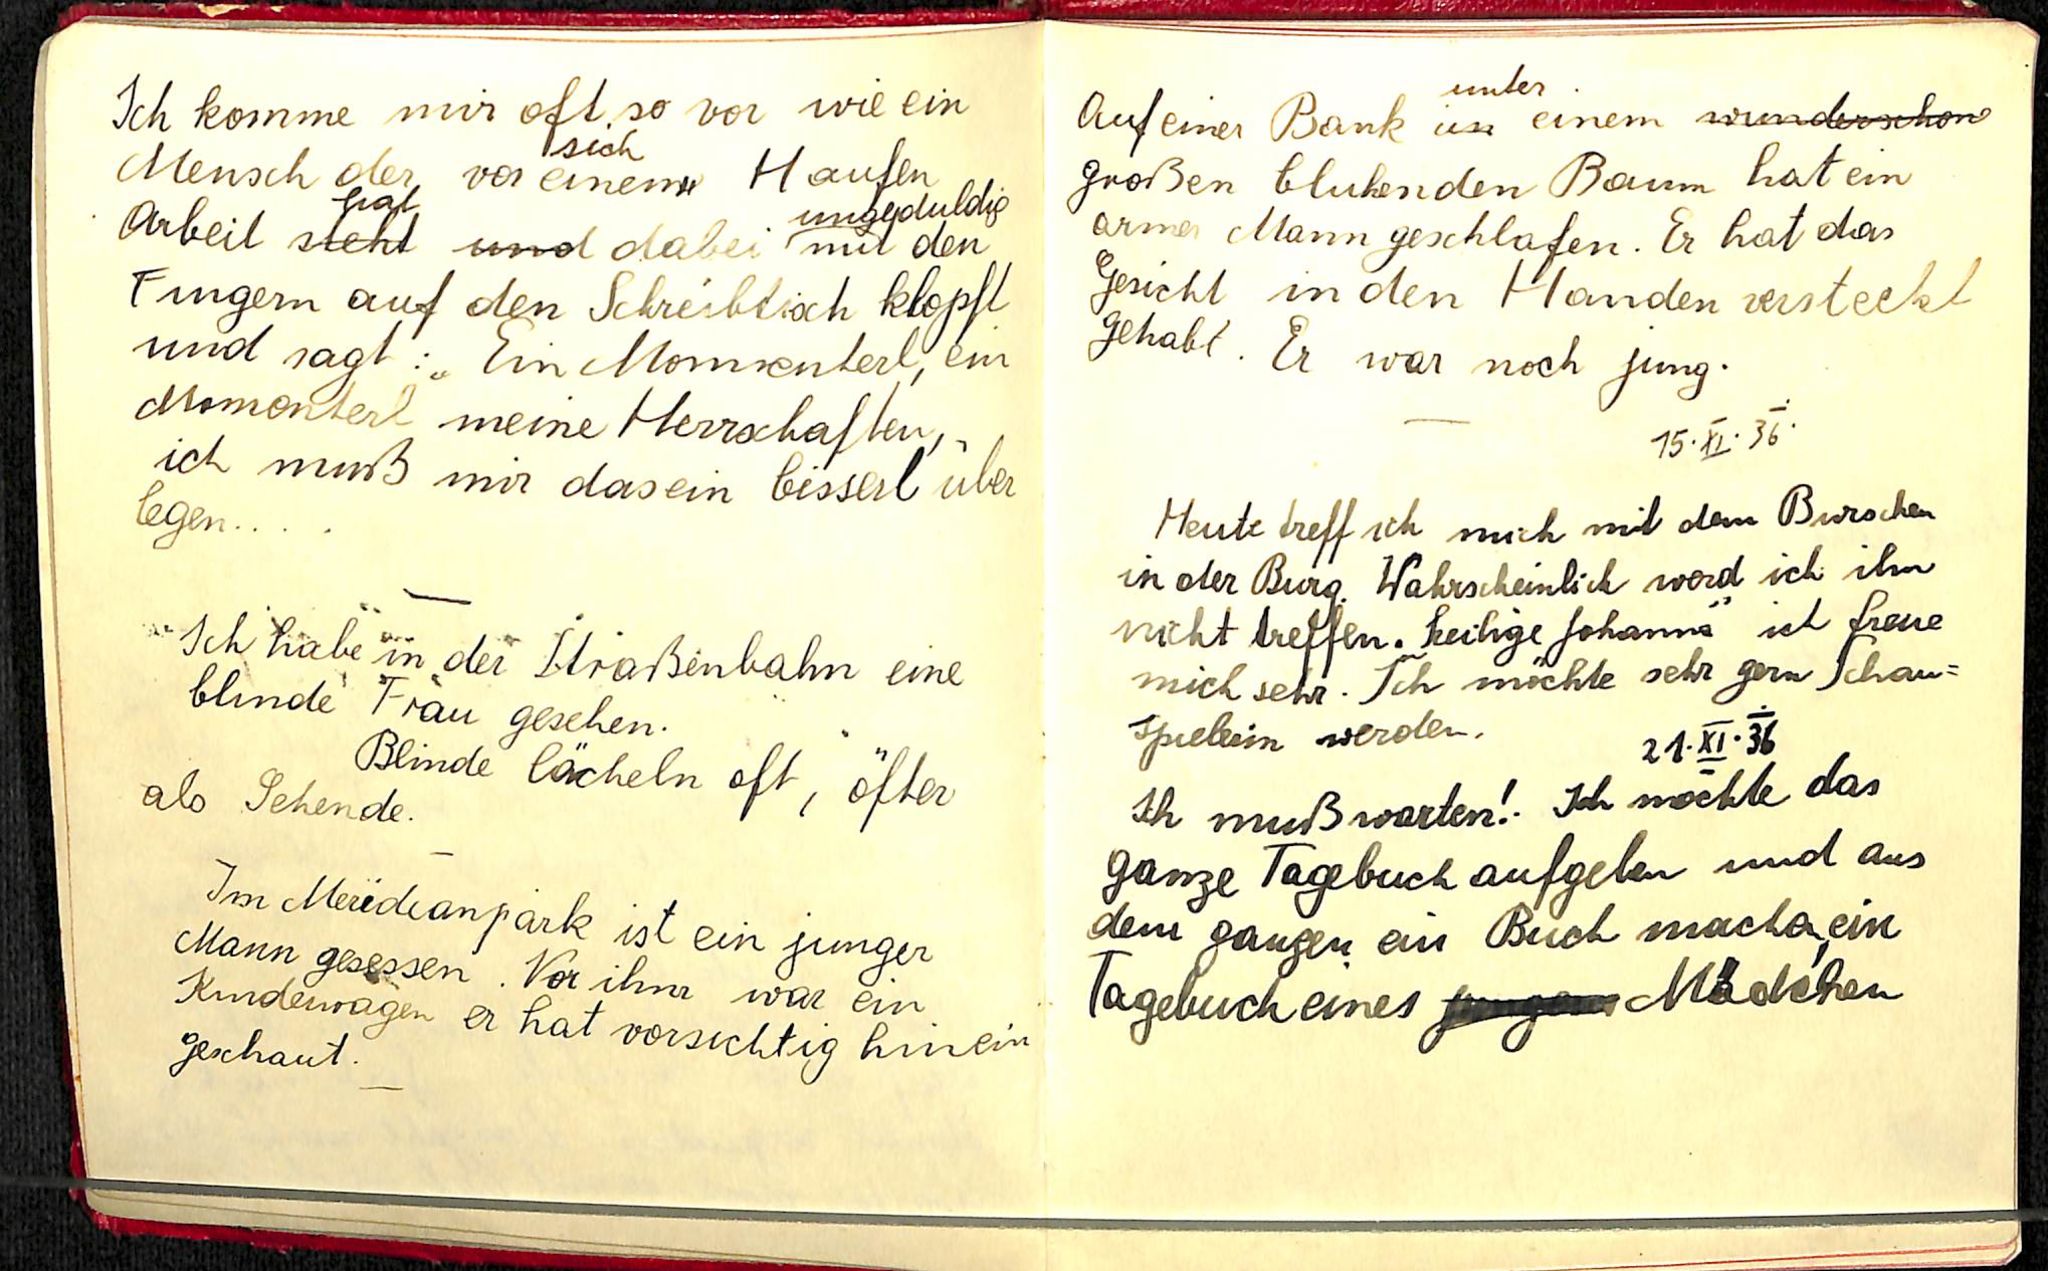 Ich komme mir oft so vor wie ein
Mensch der vor sich einen Haufen
Arbeit steht hat und dabei ungeduldig mit den
Fingern auf den Schreibtisch klopft
und sagt: „Ein Momenterl, ein
Momenterl meine Herrschaften,
ich muß mir das ein bisserl über
legen....
—
Ich habe in der Straßenbahn eine
blinde Frau gesehen.
Blinde lächeln oft, öfter
als Sehende.
—
Im Meridianpark ist ein junger
Mann gesessen. Vor ihm war ein
Kinderwagen er hat vorsichtig hinein
geschaut.
—
Auf einer Bank unter einem wunderschön
großen bluhenden Baum hat ein
armer Mann geschlafen. Er hat das
Gesicht in den Handen versteckt
gehabt. Er war noch jung.
—
15.XI.36.
Heute treff ich mich mit dem Burschen
in der Burg. Wahrscheinlich werd ich ihn
nicht treffen. heilige Johanna" ich freue
mich sehr. Ich möchte sehr gern Schau=
spielerin werden.
21.XI.36
Ich muß warten! Ich möchte das
ganze Tagebuch aufgeben und aus
dem ganzen ein Buch machen, ein
Tagebuch eines jungen Mädchen